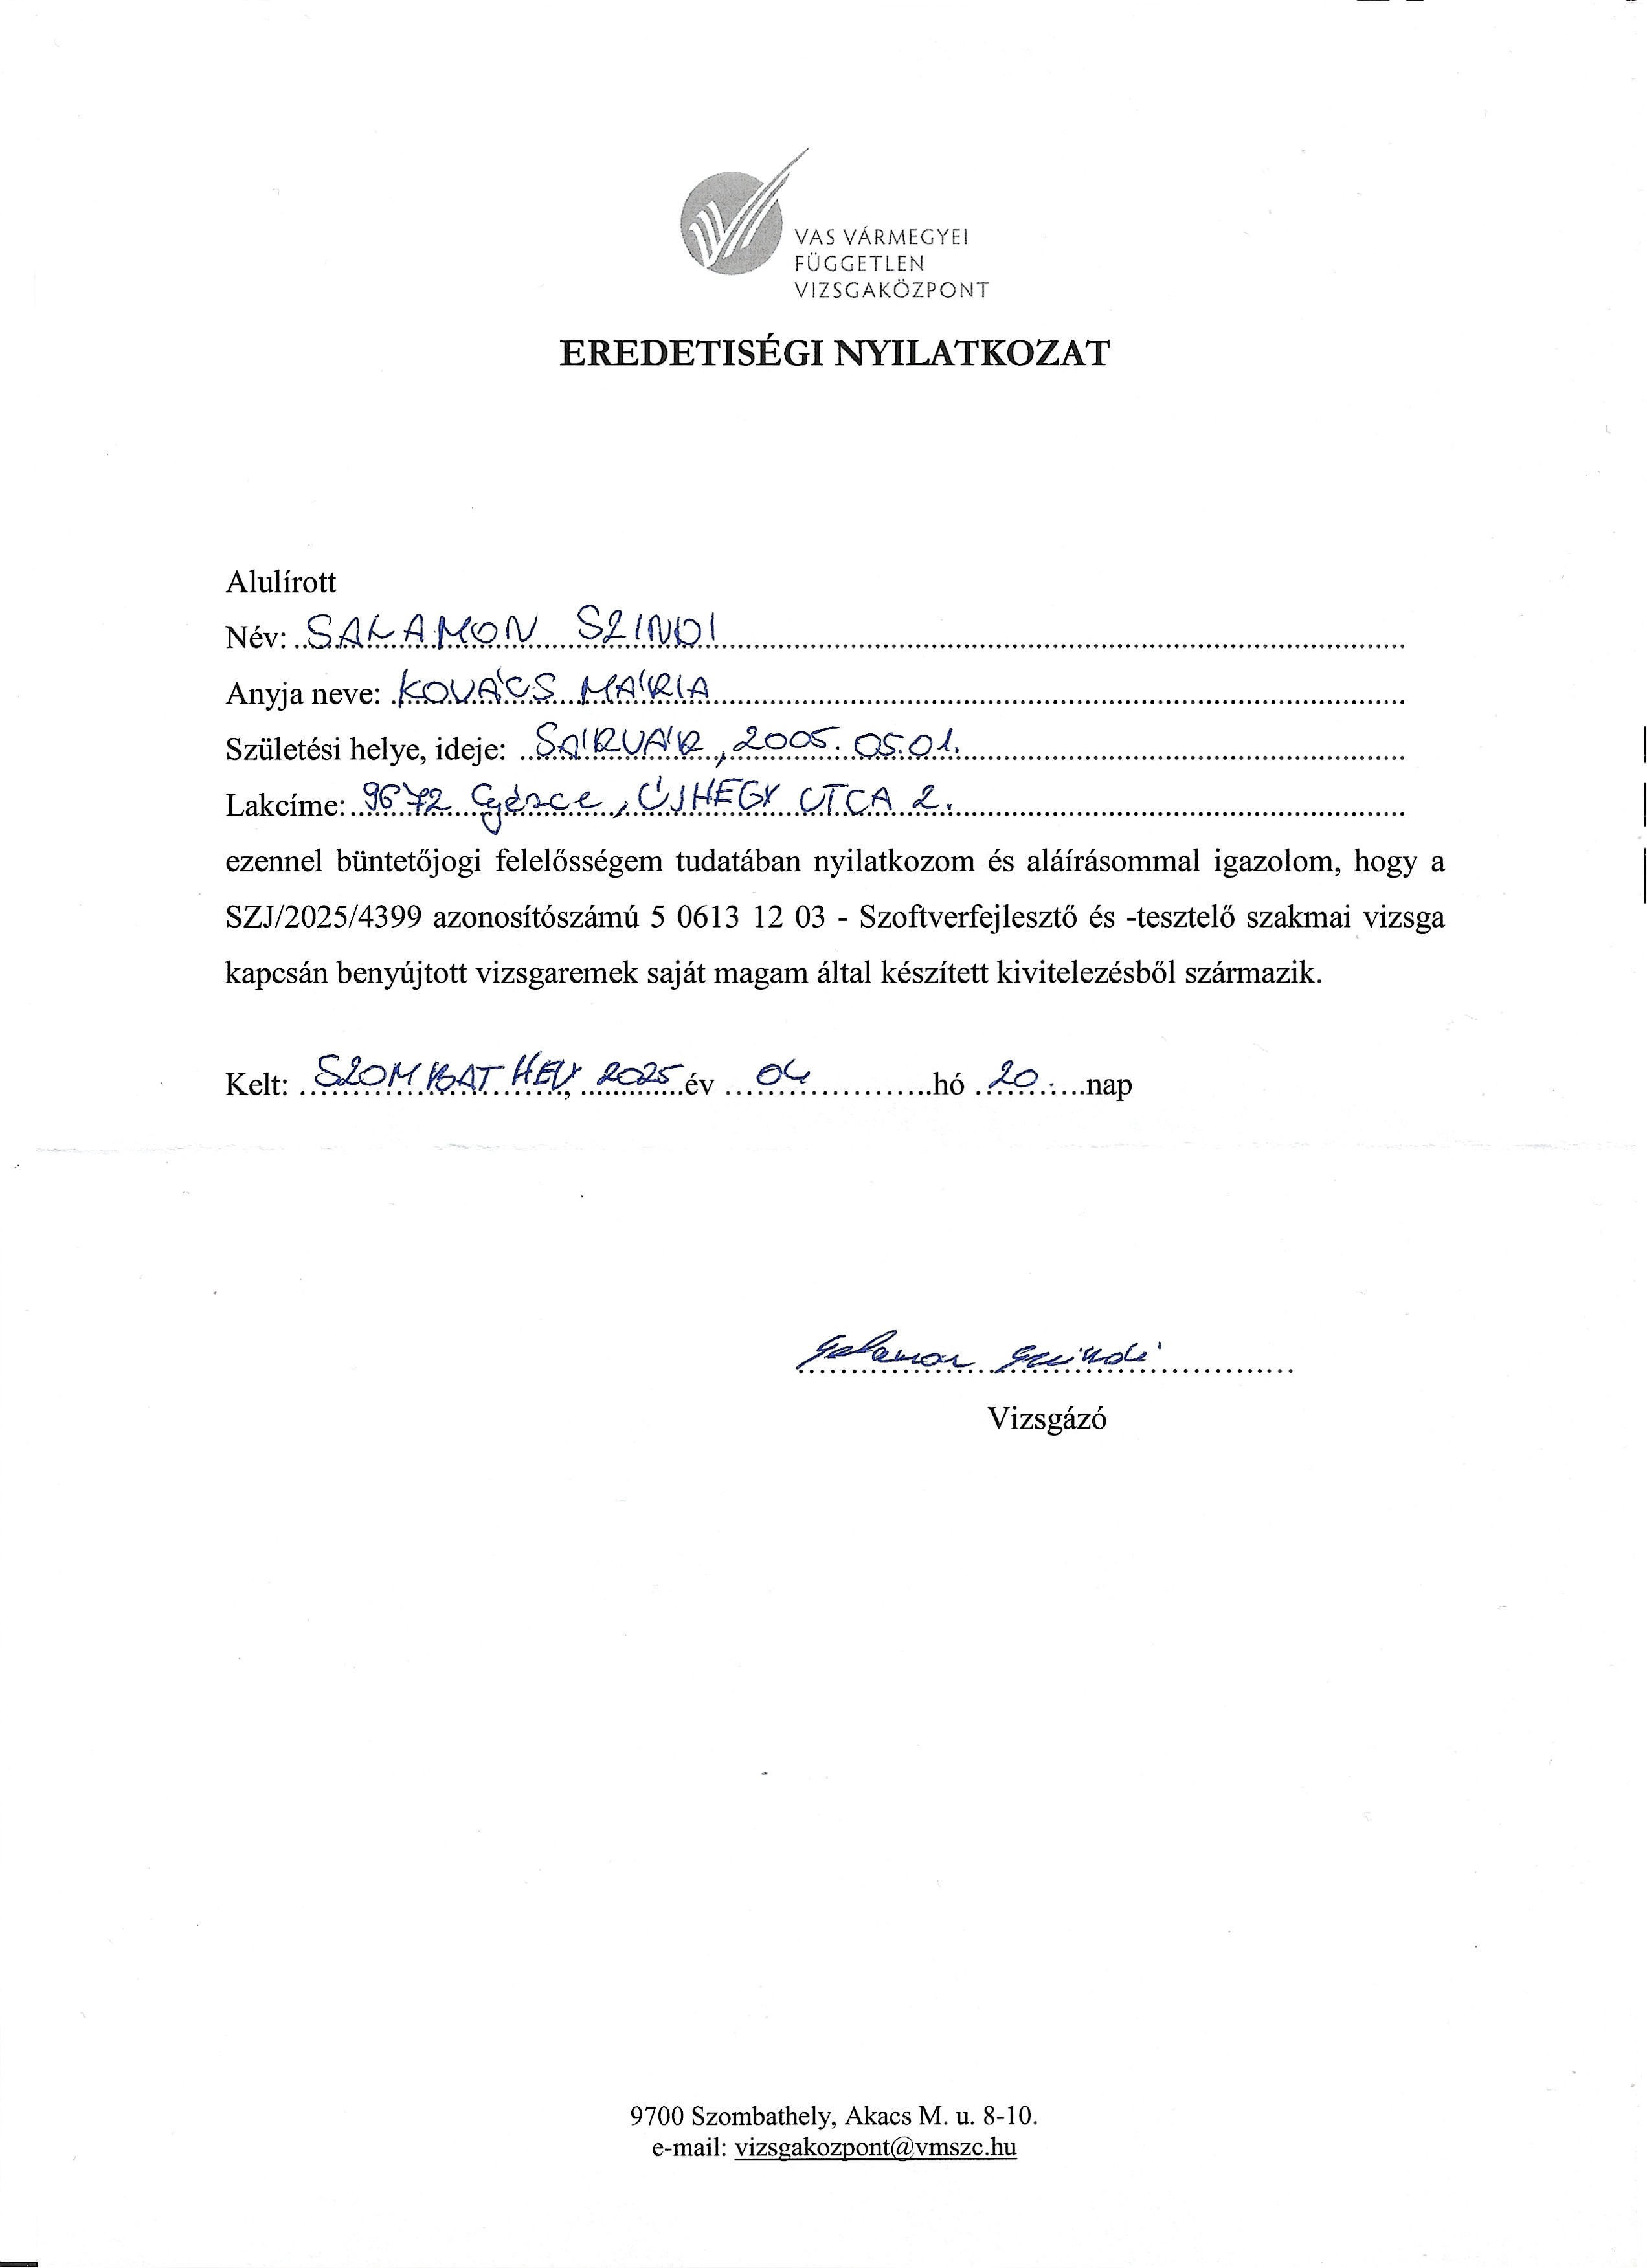 VAS VÁRMEGYEI
FÜGGETLEN
VIZSGAKÖZPONT
EREDETISÉGI NYILATKOZAT
Alulírott
Név: SALAMON SZINDI
Anyja neve: KOVÁCS MÁRIA
Születési helye, ideje: SÁRVÁR, 2005. 05.01.
Lakcíme: 9672 Gérce, ÚJHEGY UTCA 2.
ezennel büntetőjogi felelősségem tudatában nyilatkozom és aláírásommal igazolom, hogy a
SZJ/2025/4399 azonosítószámú 5 0613 12 03 - Szoftverfejlesztő és -tesztelő szakmai vizsga
kapcsán benyújtott vizsgaremek saját magam által készített kivitelezésből származik.
Kelt: SZOMBATHELY, 2025 év 04 hó 20. nap
Salamon Szindi
Vizsgázó
9700 Szombathely, Akacs M. u. 8-10.
e-mail: vizsgakozpont@vmszc.hu